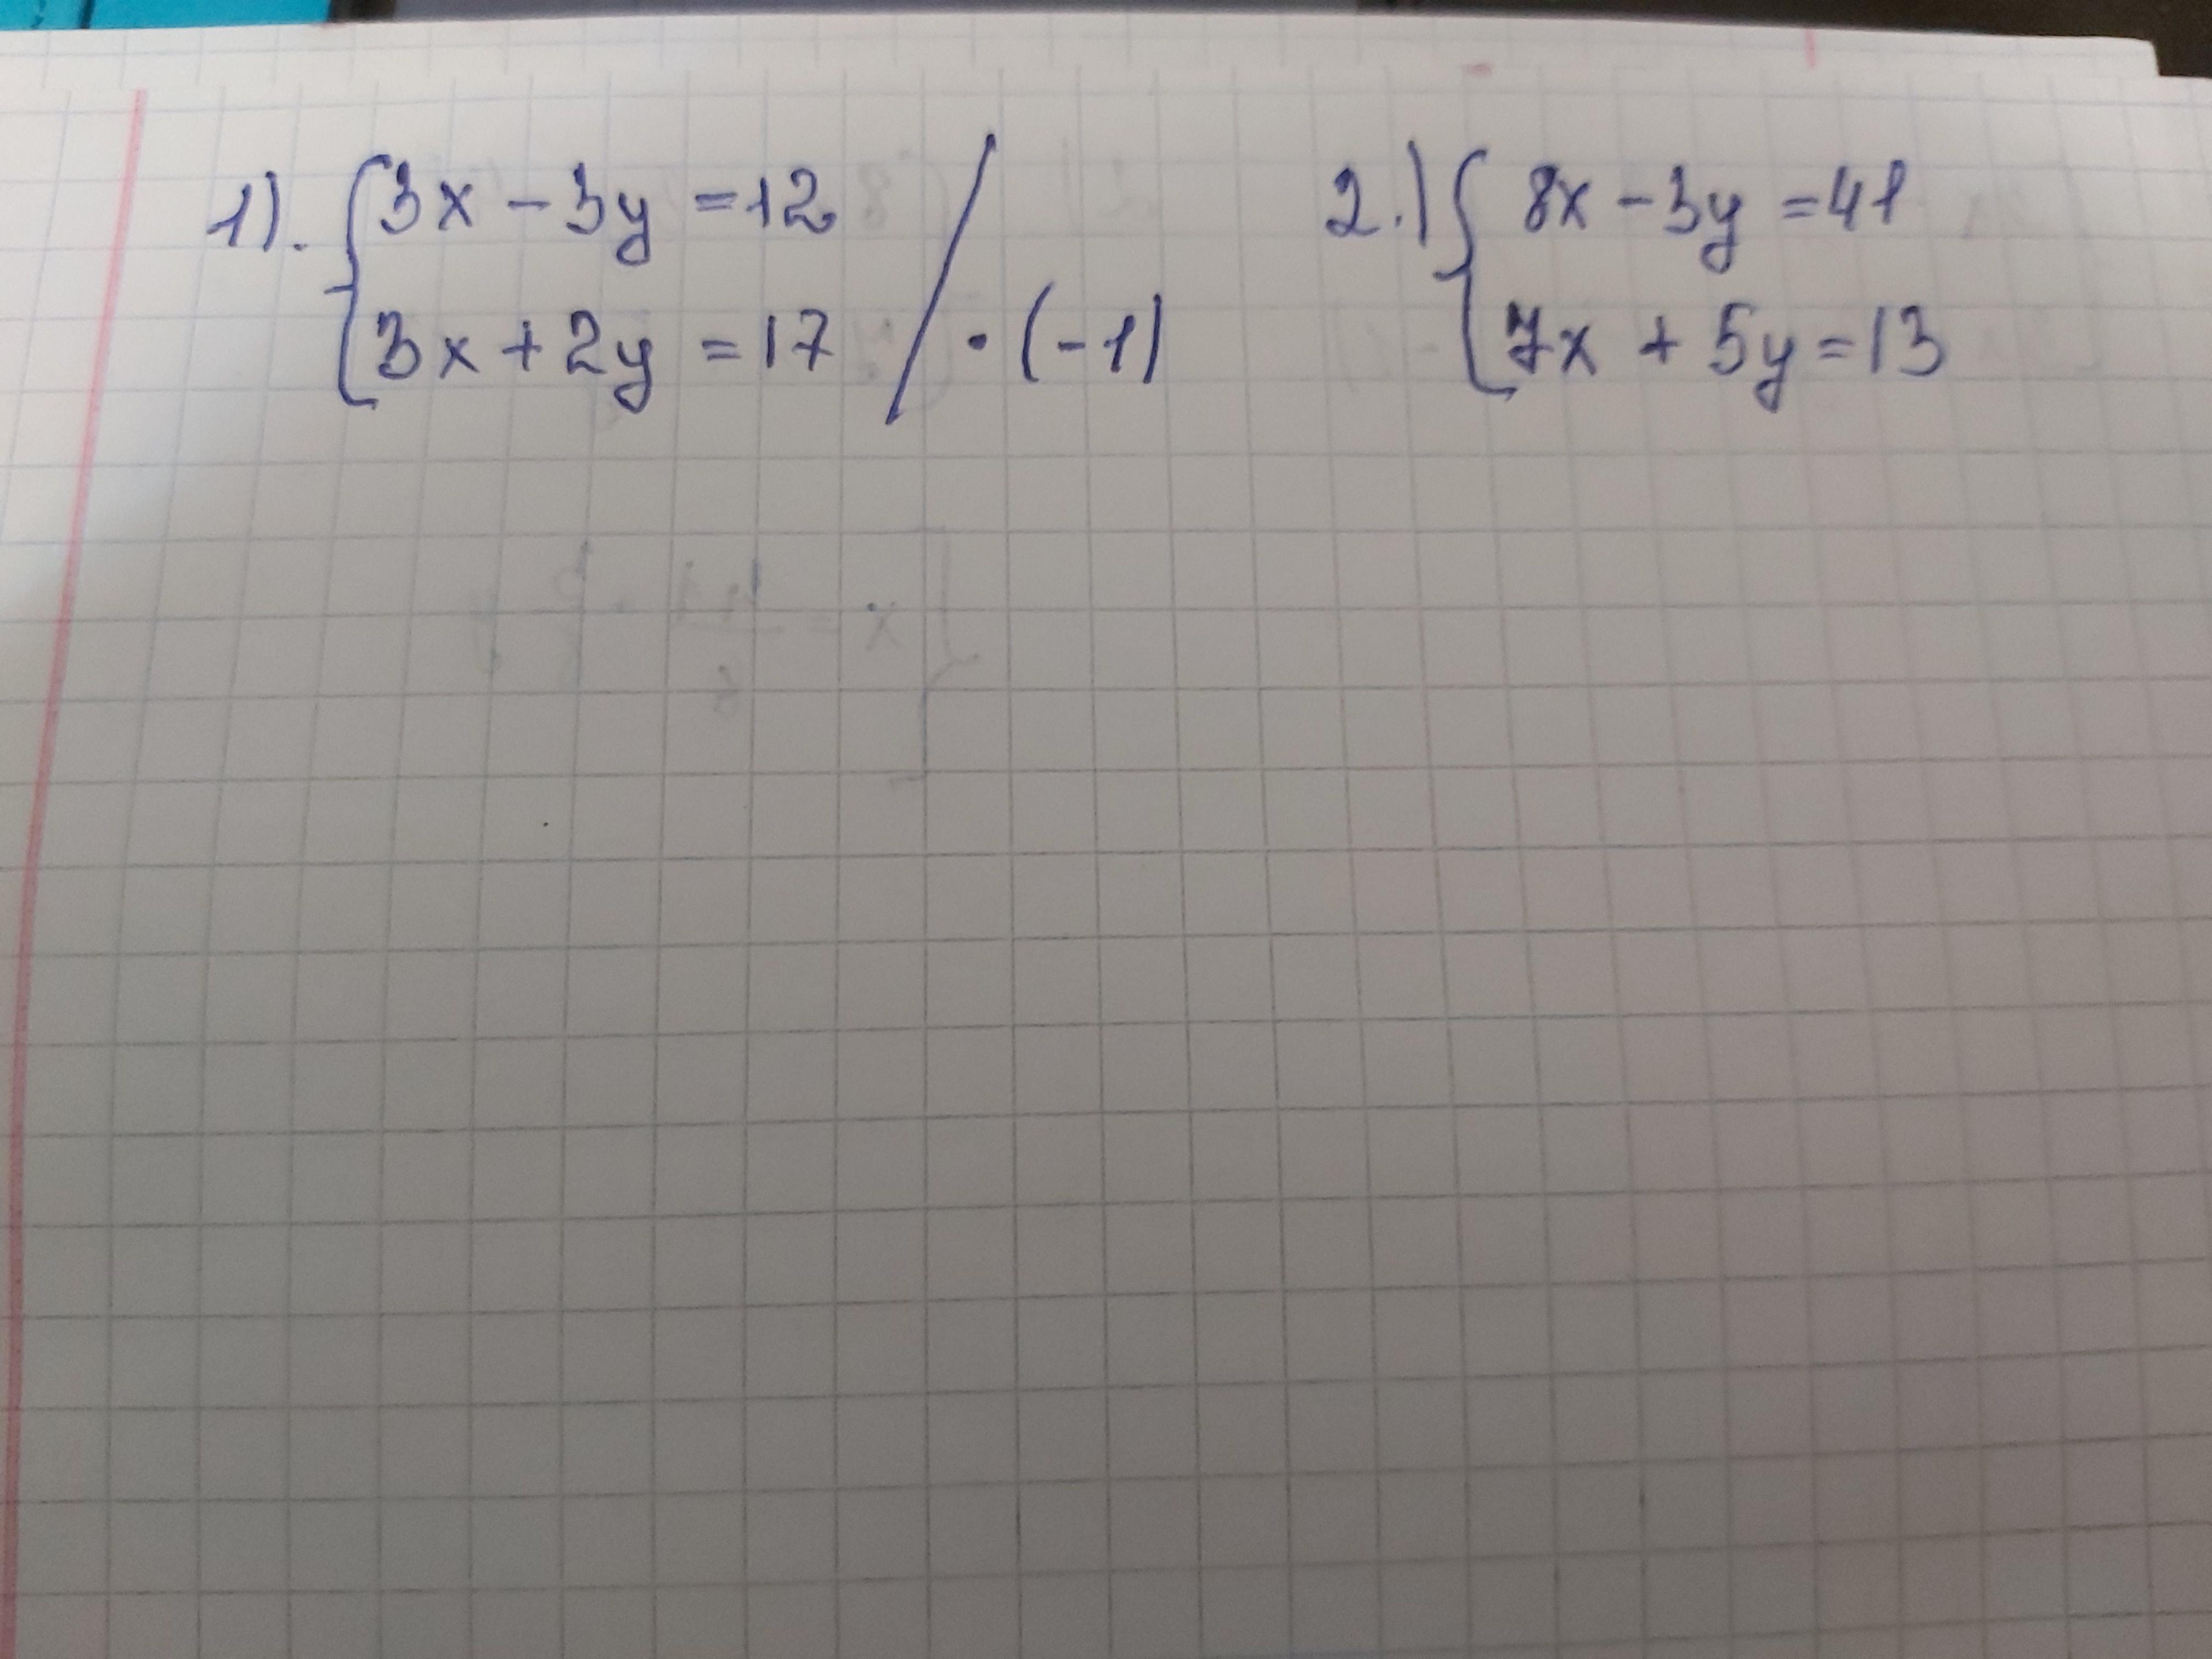 1). { 3x - 3y = 12
3x + 2y = 17 / · (-1)
2.) { 8x - 3y = 41
7x + 5y = 13